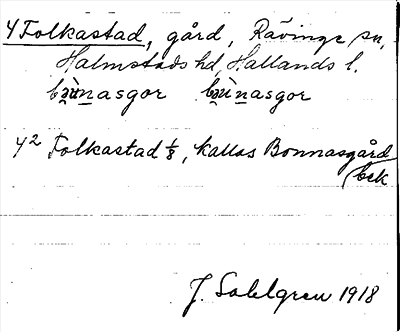 4 Folkastad, gård, Rävinge sn,
Halmstads hd, Hallands l.
bụ̀nasgor bụ̀nasgor
4² Folkastad ⅛, kallas Bonnasgård
bek
J. Sahlgren 1918